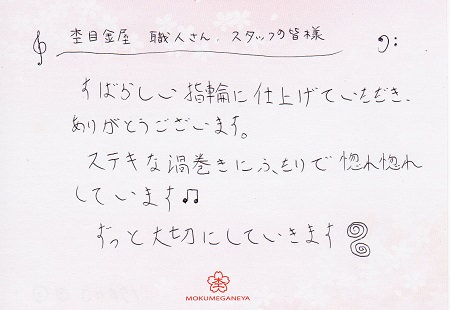 杢目金屋 職人さん、スタッフの皆様
すばらしい指輪に仕上げていただき、
ありがとうございます。
ステキな渦巻きにふたりで惚れ惚れ
しています♫
ずっと大切にしていきます
MOKUMEGANEYA